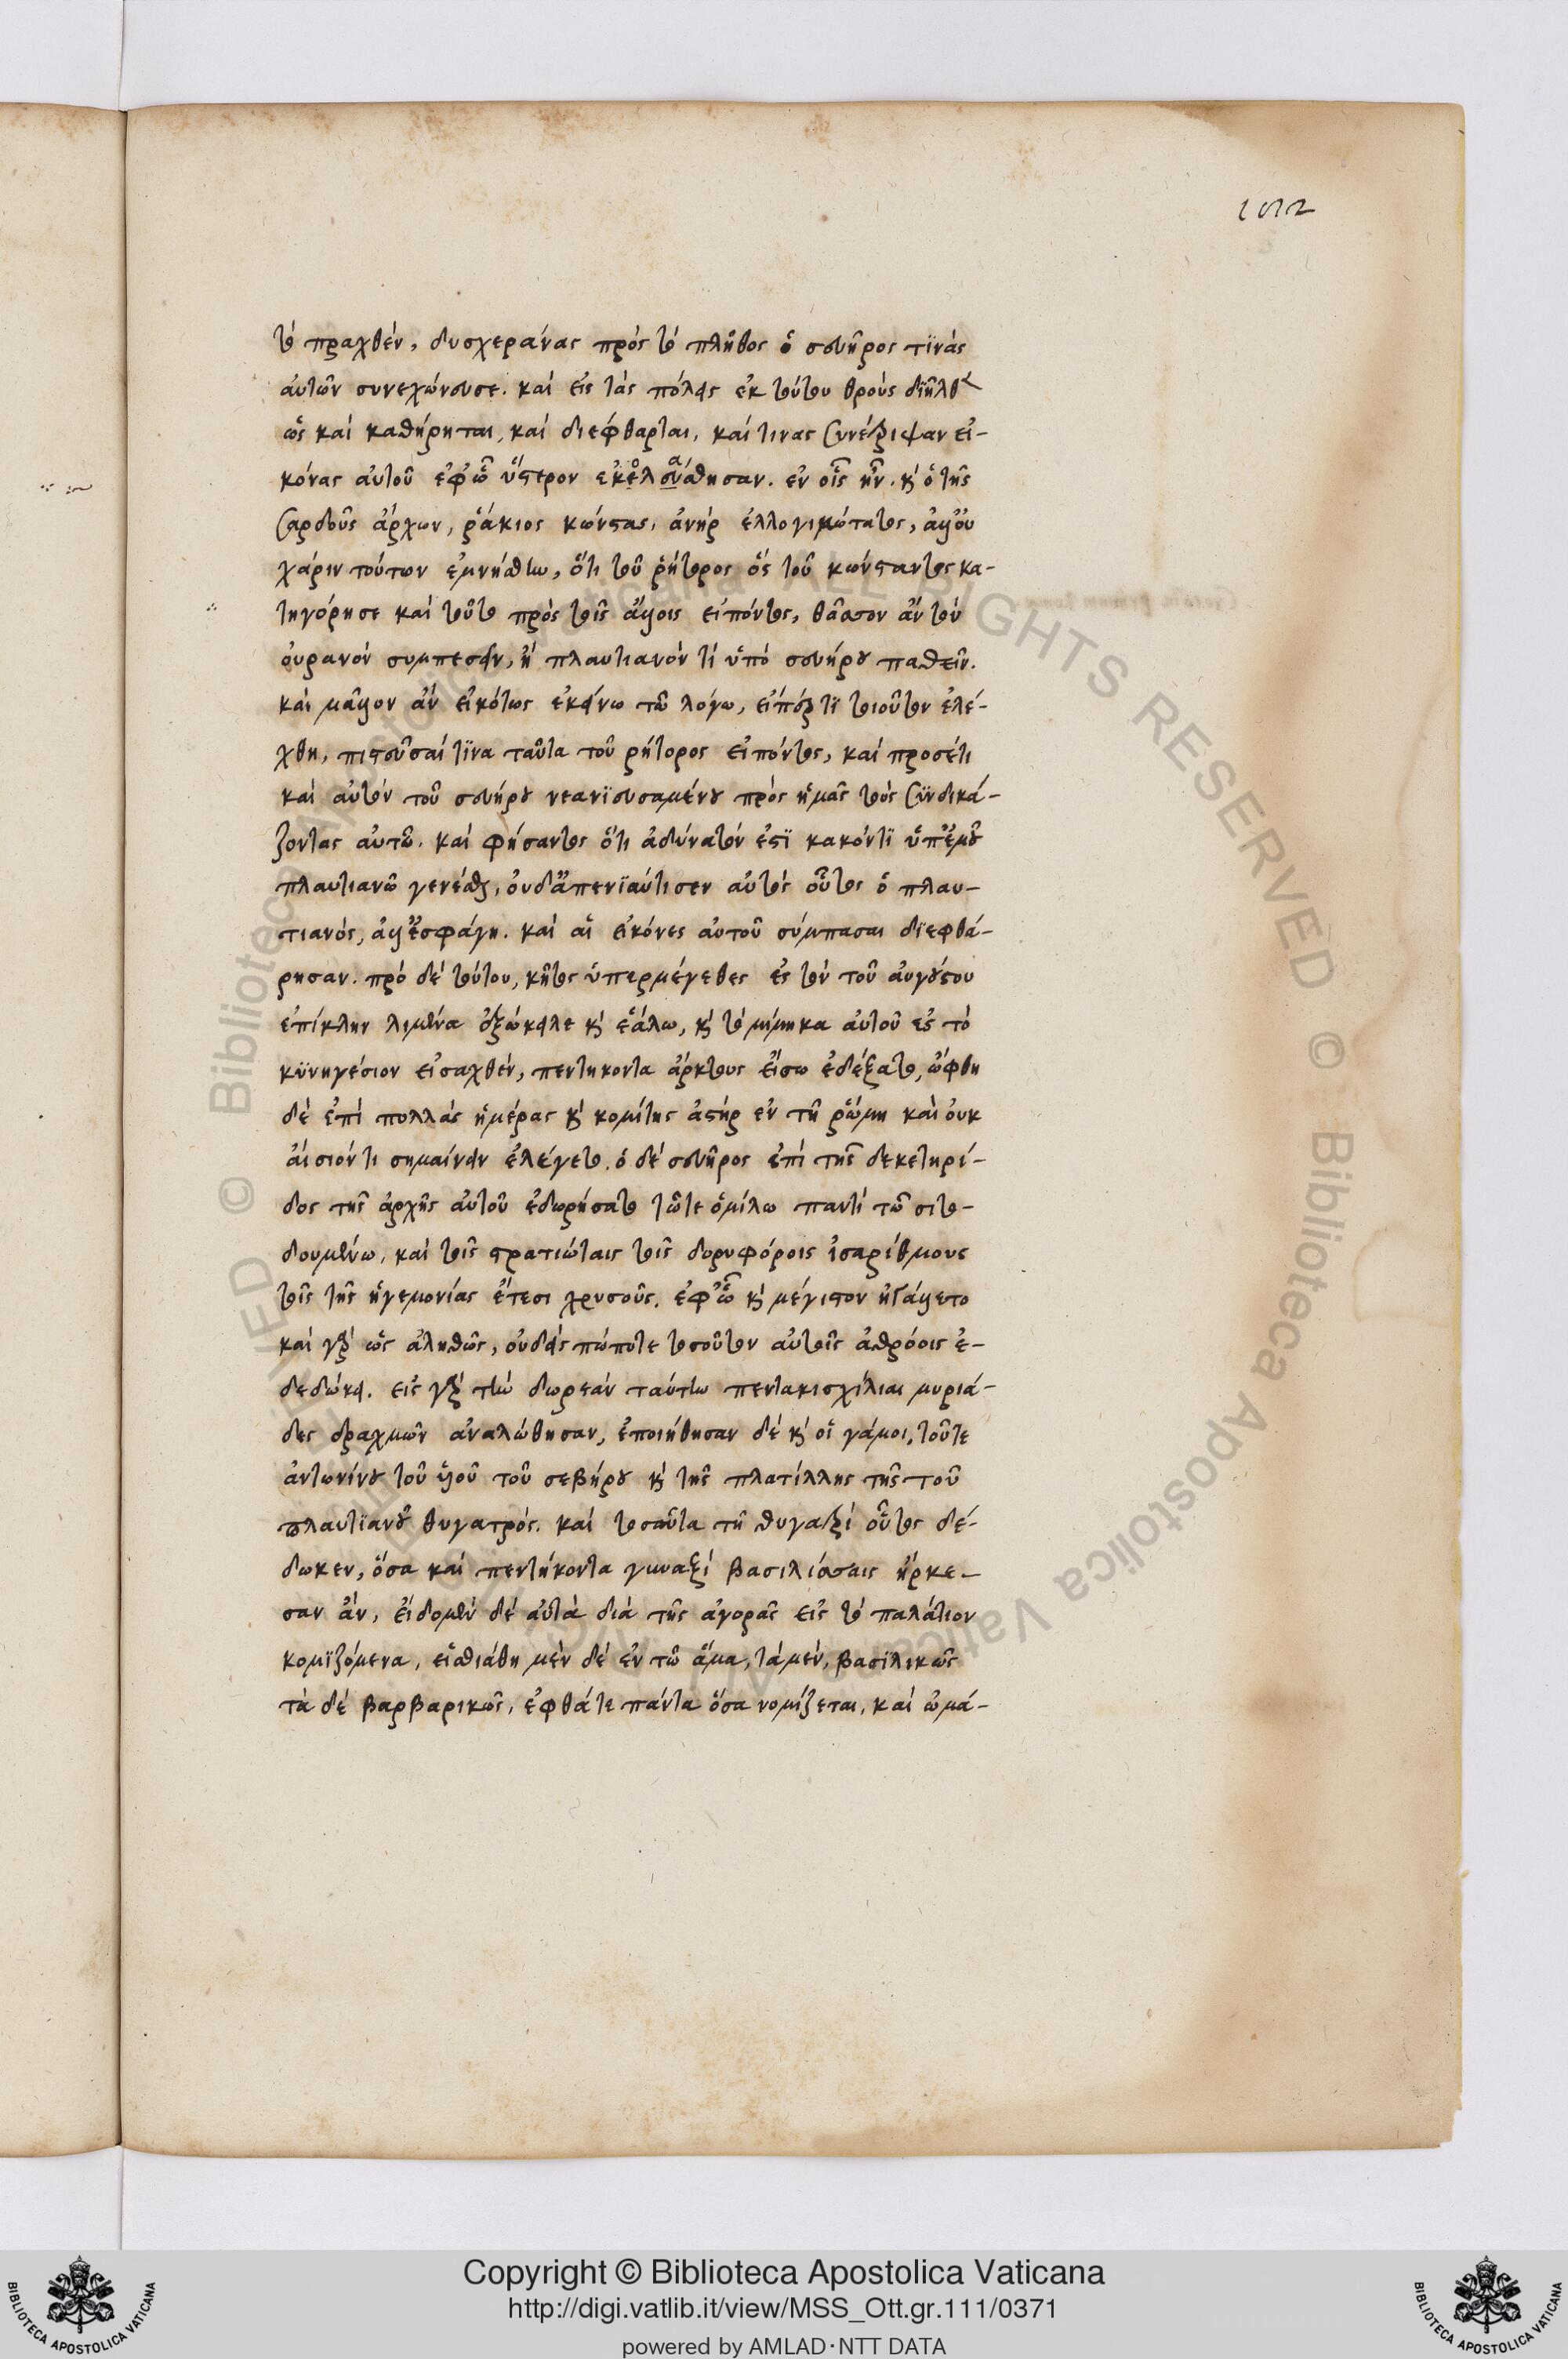 τὸ πραχθὲν, δυσχεράνας πρὸς τὸ πλῆθος ὁ σευῆρος τϊνὰς
αὐτῶν συνεχώνευσε. καὶ εἰς τὰς πόλεις ἐκ τούτου θροῦς διῆλθεν
ὡς καὶ καθήρηται, καὶ διέφθαρται, καί τινας συνέτριψαν εἰ-
κόνας αὐτοῦ ἐφ' ᾧ ὕστερον ἐκολάσθησαν. ἐν οἷς ἦν. κ ὁ τῆς
σαρδοῦς ἄρχων, ῥάκιος κώνστας, ἀνὴρ ἐλλογιμώτατος, ἀλλ' οὗ
χάριν τούτων ἐμνήσθην, ὅτι τοῦ ῥήτορος ὃς τοῦ κώνσταντος κα-
τηγόρησε καὶ τοῦτο πρὸς τοῖς ἄλλοις εἰπόντος, θᾶσσον ἂν τὸν
οὐρανὸν συμπεσεῖν, ἢ πλαυτιανόν τι ὑπὸ σευήρου παθεῖν.
καὶ μᾶλλον ἂν εἰκότως ἐκείνω τῶ λόγω, εἴπέρ τϊ τοιοῦτον ἐλέ-
χθη, πιστεῦσαί τϊνα ταῦτα τοῦ ῥήτορος εἰπόντος, καὶ προσέτι
καὶ αὐτὸν τοῦ σευήρου νεανϊευσαμένου πρὸς ἡμᾶς τοὺς συνδικά-
ζοντας αὐτῶ. καὶ φήσαντος ὅτι ἀδύνατόν ἐστϊ κακόν τϊ ὑπ' ἐμοῦ
πλαυτιανῶ γενέσθαι, οὐδ' ἀπενϊαύτισεν αὐτὸς οὗτος ὁ πλαυ-
τιανὸς, ἀλλ' ἐσφάγη. καὶ αἱ εἰκόνες αὐτοῦ σύμπασαι δϊεφθά-
ρησαν. πρὸ δὲ τούτου, κῆτος ὑπερμέγεθες ἐς τὸν τοῦ αὐγούστου
ἐπίκλην λιμένα ἐξώκειλε κ ἑάλω, κ τὸ μίμημα αὐτοῦ ἐς τὸ
κϋνηγέσιον εἰσαχθὲν, πεντήκοντα ἄρκτους εἴσω ἐδέξατο, ὤφθη
δὲ ἐπὶ πολλὰς ἡμέρας κ κομίτης ἀστὴρ ἐν τῆ ῥώμη καὶ οὐκ
αἴσιόν τι σημαίνειν ἐλέγετο. ὁ δὲ σευῆρος ἐπὶ τῆς δεκετηρί-
δος τῆς ἀρχῆς αὐτοῦ ἐδωρήσατο τῶτε ὁμίλω παντὶ τῶ σιτο-
δουμένω, καὶ τοῖς στρατιώταις τοῖς δορυφόροις ἰσαρίθμους
τοῖς τῆς ἡγεμονίας ἔτεσι χρυσοῦς, ἐφ' ᾧ κ μέγιστον ἠγάλλετο
καὶ γὰρ ὡς ἀληθῶς, οὐδεὶς πώποτε τοσοῦτον αὐτοῖς ἀθρόοις ἐ-
δεδώκει. εἰς γὰρ τὴν δωρεὰν ταύτην πεντακισχίλιαι μυριά-
δες δραχμῶν ἀναλώθησαν, ἐποιήθησαν δὲ κ οἱ γάμοι, τοῦτε
ἀντωνίνου τοῦ υἱοῦ τοῦ σεβήρου κ τῆς πλατίλλης τῆς τοῦ
πλαυτϊανοῦ θυγατρὸς. καὶ τοσαῦτα τῆ θυγατρὶ οὗτος δέ-
δωκεν, ὅσα καὶ πεντήκοντα γυναιξὶ βασιλίσσαις ἤρκε-
σαν ἂν, εἴδομεν δὲ αὐτὰ διὰ τῆς ἀγορᾶς εἰς τὸ παλάτιον
κομϊζόμενα, εἱστιάθη μὲν δὲ ἐν τῶ ἅμα, τὰ μὲν, βασϊλικῶς
τὰ δὲ βαρβαρικῶς, ἐφθά τε πάντα ὅσα νομίζεται, καὶ ὠμά-
Copyright © Biblioteca Apostolica Vaticana
http://digi.vatlib.it/view/MSS_Ott.gr.111/0371
powered by AMLAD·NTT DATA
BIBLIOTECA APOSTOLICA VATICANA
BIBLIOTECA APOSTOLICA VATICANA